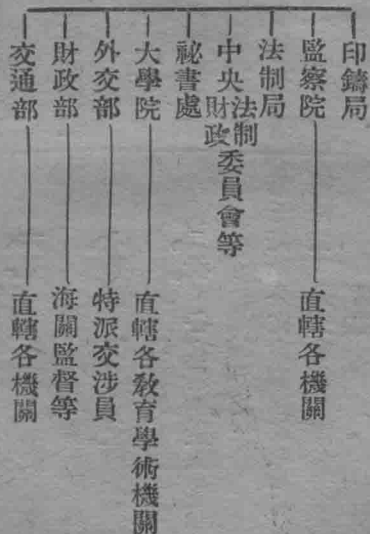 印鑄局
監察院 直轄各機關
法制局
中央法制財政委員會等
祕書處
大學院 直轄各教育學術機關
外交部 特派交涉員
財政部 海關監督等
交通部 直轄各機關